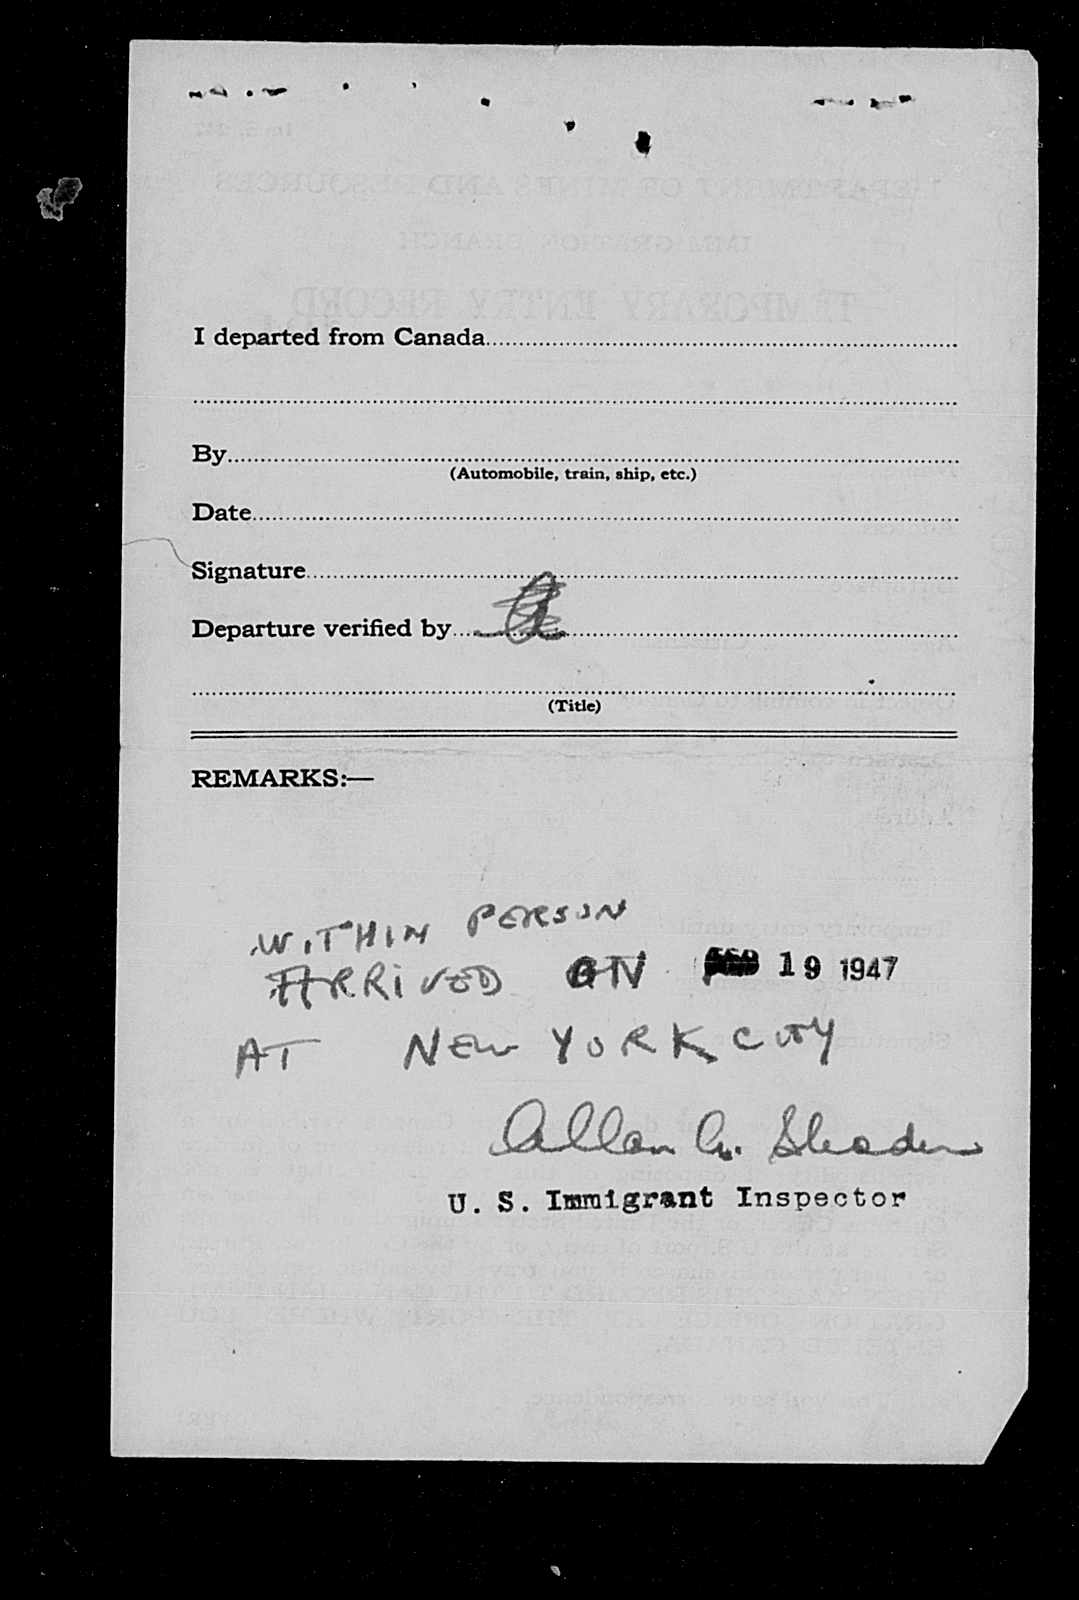 I departed from Canada
By
(Automobile, train, ship, etc.)
Date
Signature
Departure verified by
(Title)
REMARKS:—
WITHIN PERSON
ARRIVED ON 19 1947
AT NEW YORK CITY
Allan
U. S. Immigrant Inspector